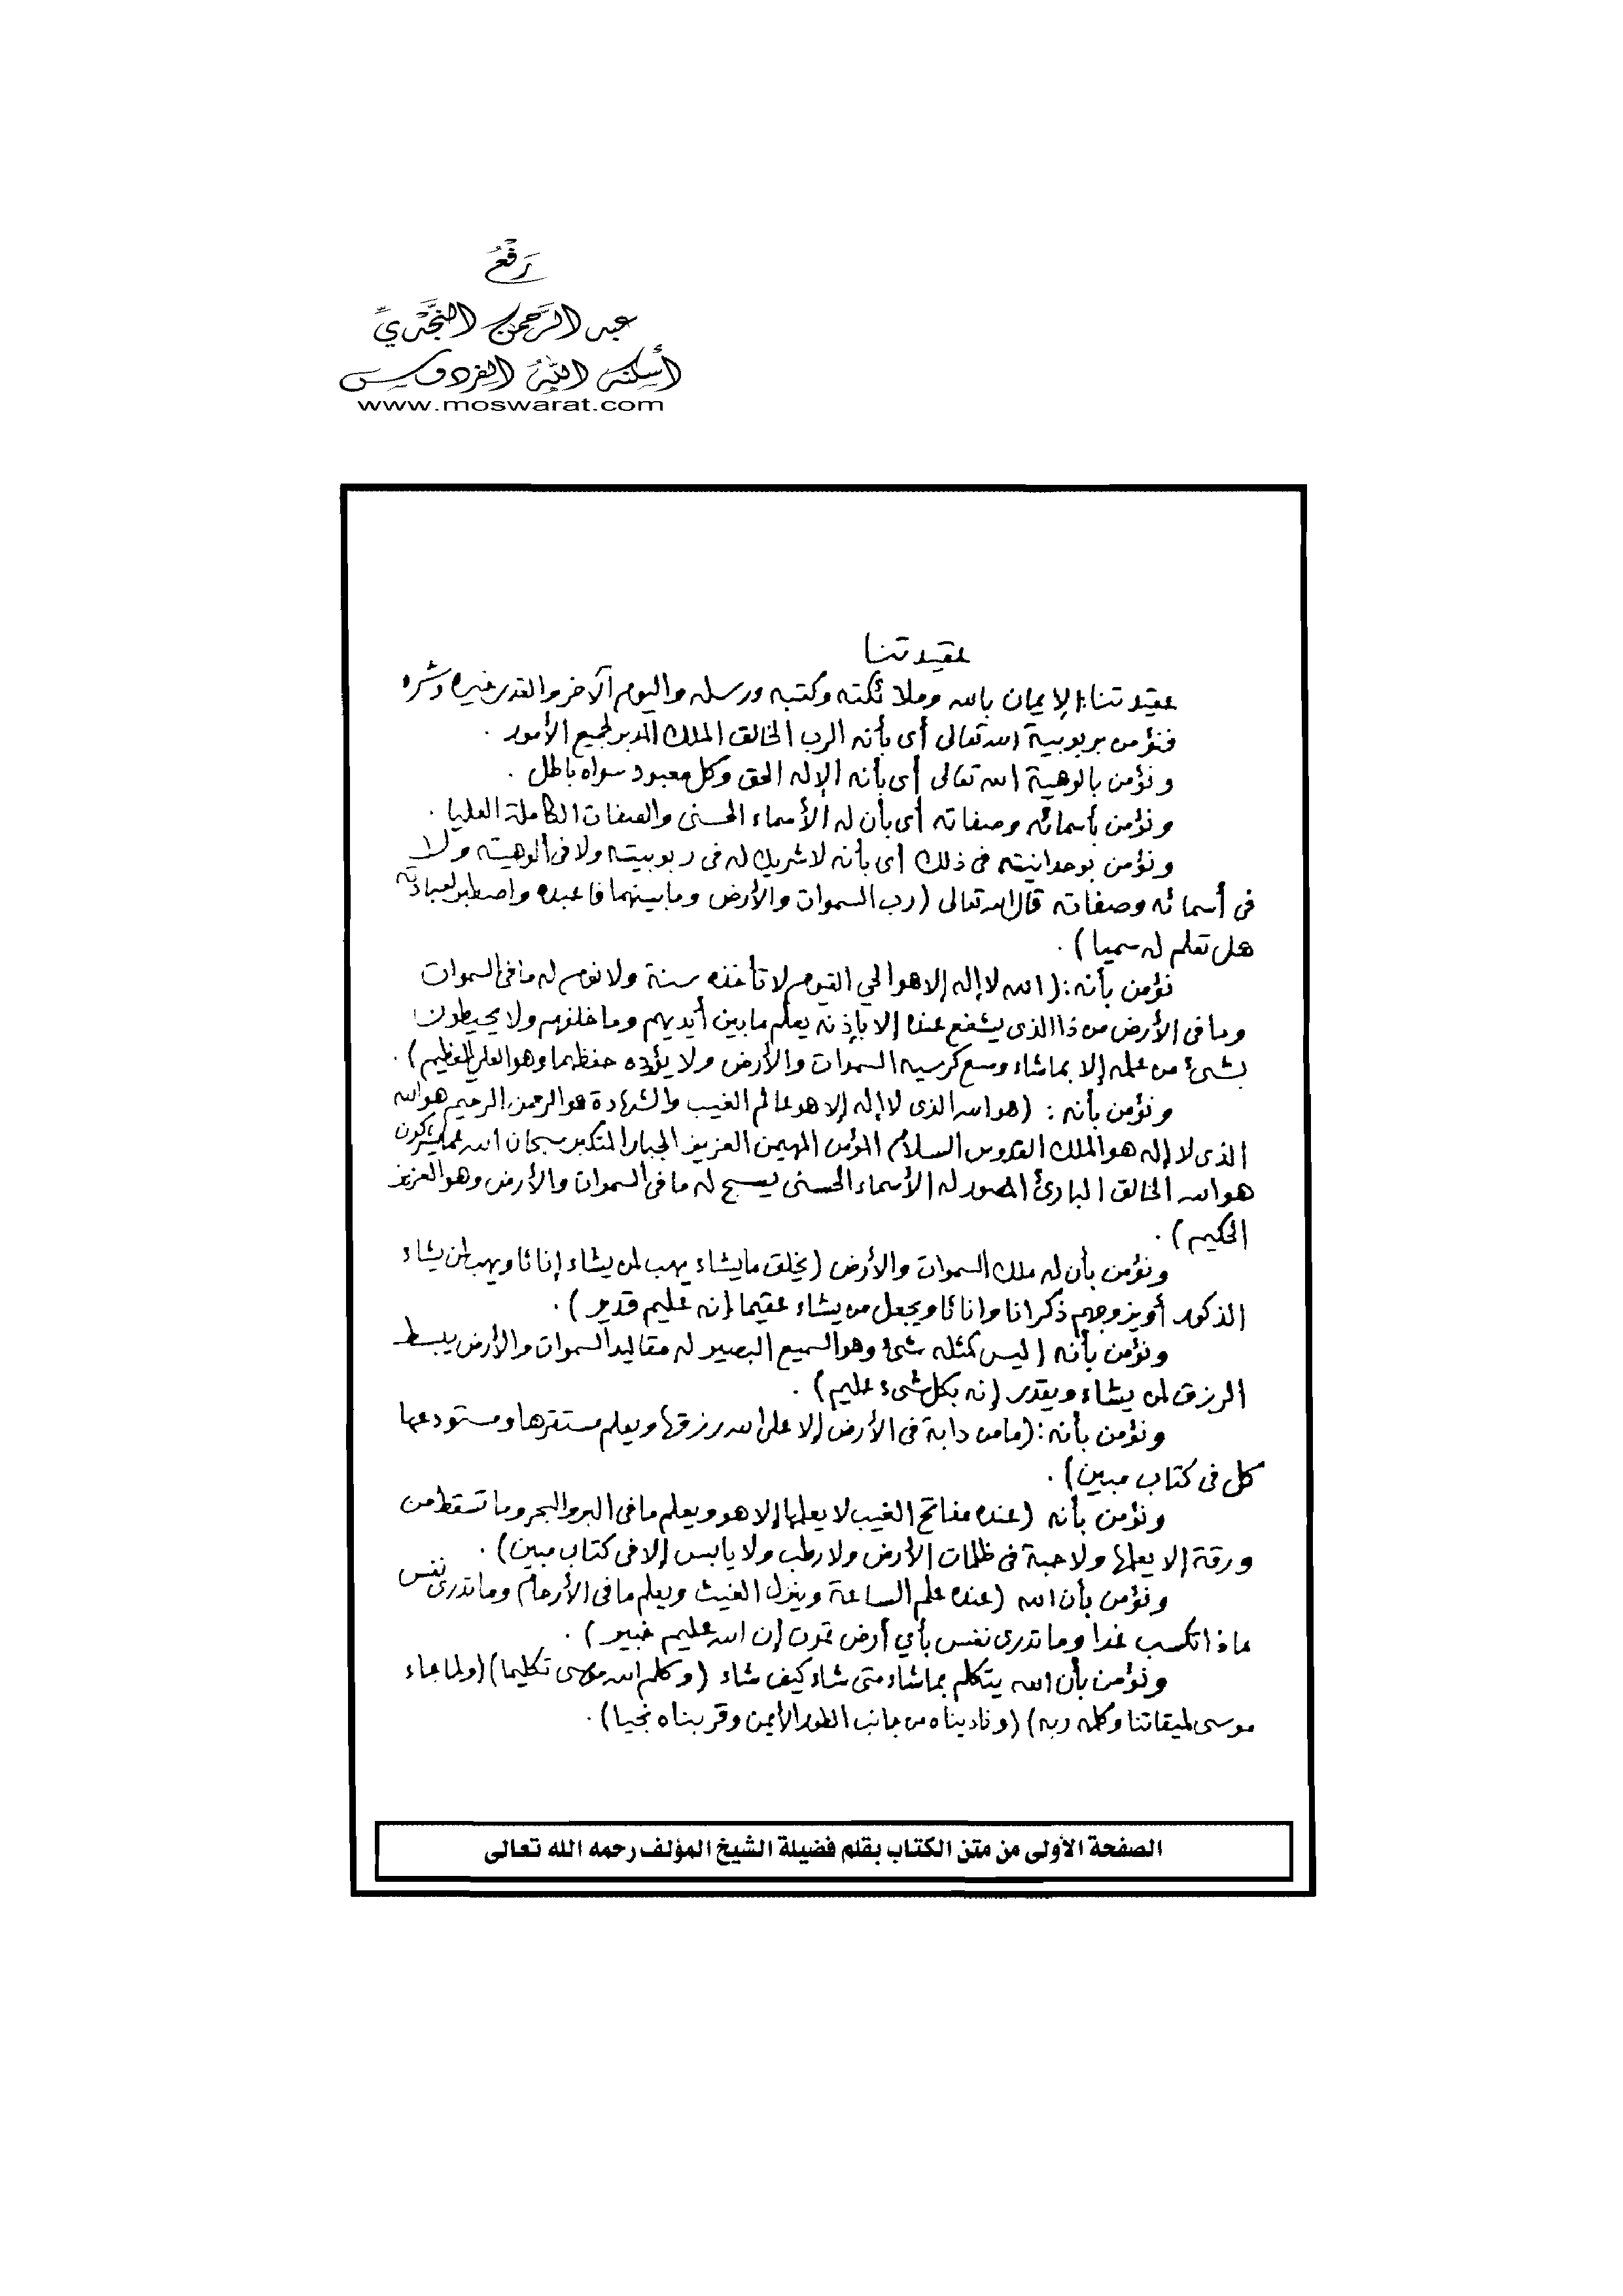 رَفْعُ
عبد الرَّحمن النَّجْدِيِّ
أسكنه اللهُ الفردوس
www.moswarat.com
عقيدتنا
عقيدتنا: الإيمان بالله وملائكته وكتبه ورسله واليوم الآخر والقدر خيره وشره
فنؤمن بربوبية الله تعالى أى بأنه الرب الخالق الملك المدبر لجميع الأمور .
ونؤمن بالوهية الله تعالى أى بأنه الإله الحق وكل معبود سواه باطل .
ونؤمن بأسمائه وصفاته أى بأن له الأسماء الحسنى والصفات الكاملة العليا .
ونؤمن بوحدانيته فى ذلك أى بأنه لا شريك له فى ربوبيته ولا فى الوهيته ولا
فى أسمائه وصفاته قال الله تعالى (رب السموات والأرض وما بينهما فاعبده واصطبر لعبادته
هل تعلم له سميا) .
نؤمن بأنه : (الله لا إله إلا هو الحي القيوم لا تأخذه سنة ولا نوم له ما فى السموات
وما فى الأرض من ذا الذى يشفع عنده إلا بإذنه يعلم ما بين أيديهم وما خلفهم ولا يحيطون
بشئ من علمه إلا بما شاء وسع كرسيه السموات والأرض ولا يؤده حفظهما وهو العلي العظيم) .
ونؤمن بأنه : (هو الله الذى لا إله إلا هو عالم الغيب والشهادة هو الرحمن الرحيم هو الله
الذى لا إله هو الملك القدوس السلام المؤمن المهيمن العزيز الجبار المتكبر سبحان الله عما يشركون
هو الله الخالق البارئ المصور له الأسماء الحسنى يسبح له ما فى السموات والأرض وهو العزيز
الحكيم) .
ونؤمن بأن له ملك السموات والأرض (يخلق ما يشاء يهب لمن يشاء إناثا ويهب لمن يشاء
الذكور أو يزوجهم ذكرانا واناثا ويجعل من يشاء عقيما إنه عليم قدير) .
ونؤمن بأنه (ليس كمثله شئ وهو السميع البصير له مقاليد السموات والأرض يبسط
الرزق لمن يشاء ويقدر إنه بكل شىء عليم) .
ونؤمن بأنه : (ما من دابة فى الأرض إلا على الله رزقها ويعلم مستقرها ومستودعها
كل فى كتاب مبين) .
ونؤمن بأنه (عنده مفاتح الغيب لا يعلمها إلا هو ويعلم ما فى البر والبحر وما تسقط من
ورقة إلا يعلمها ولا حبة فى ظلمات الأرض ولا رطب ولا يابس إلا فى كتاب مبين) .
ونؤمن بأن الله (عنده علم الساعة وينزل الغيث ويعلم ما فى الأرحام وما تدرى نفس
ماذا تكسب غدا وما تدرى نفس بأي أرض تموت إن الله عليم خبير) .
ونؤمن بأن الله يتكلم بما شاء متى شاء كيف شاء (وكلم الله موسى تكليما) (ولما جاء
موسى لميقاتنا وكلمه ربه) (وناديناه من جانب الطور الأيمن وقربناه نجيا) .
الصفحة الأولى من متن الكتاب بقلم فضيلة الشيخ المؤلف رحمه الله تعالى